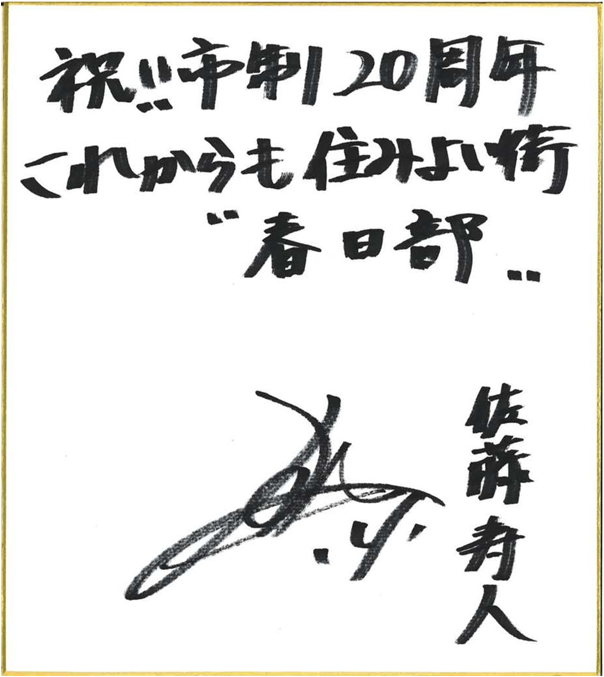 祝!! 市制20周年
これからも住みよい街
〝春日部〟
佐藤寿人